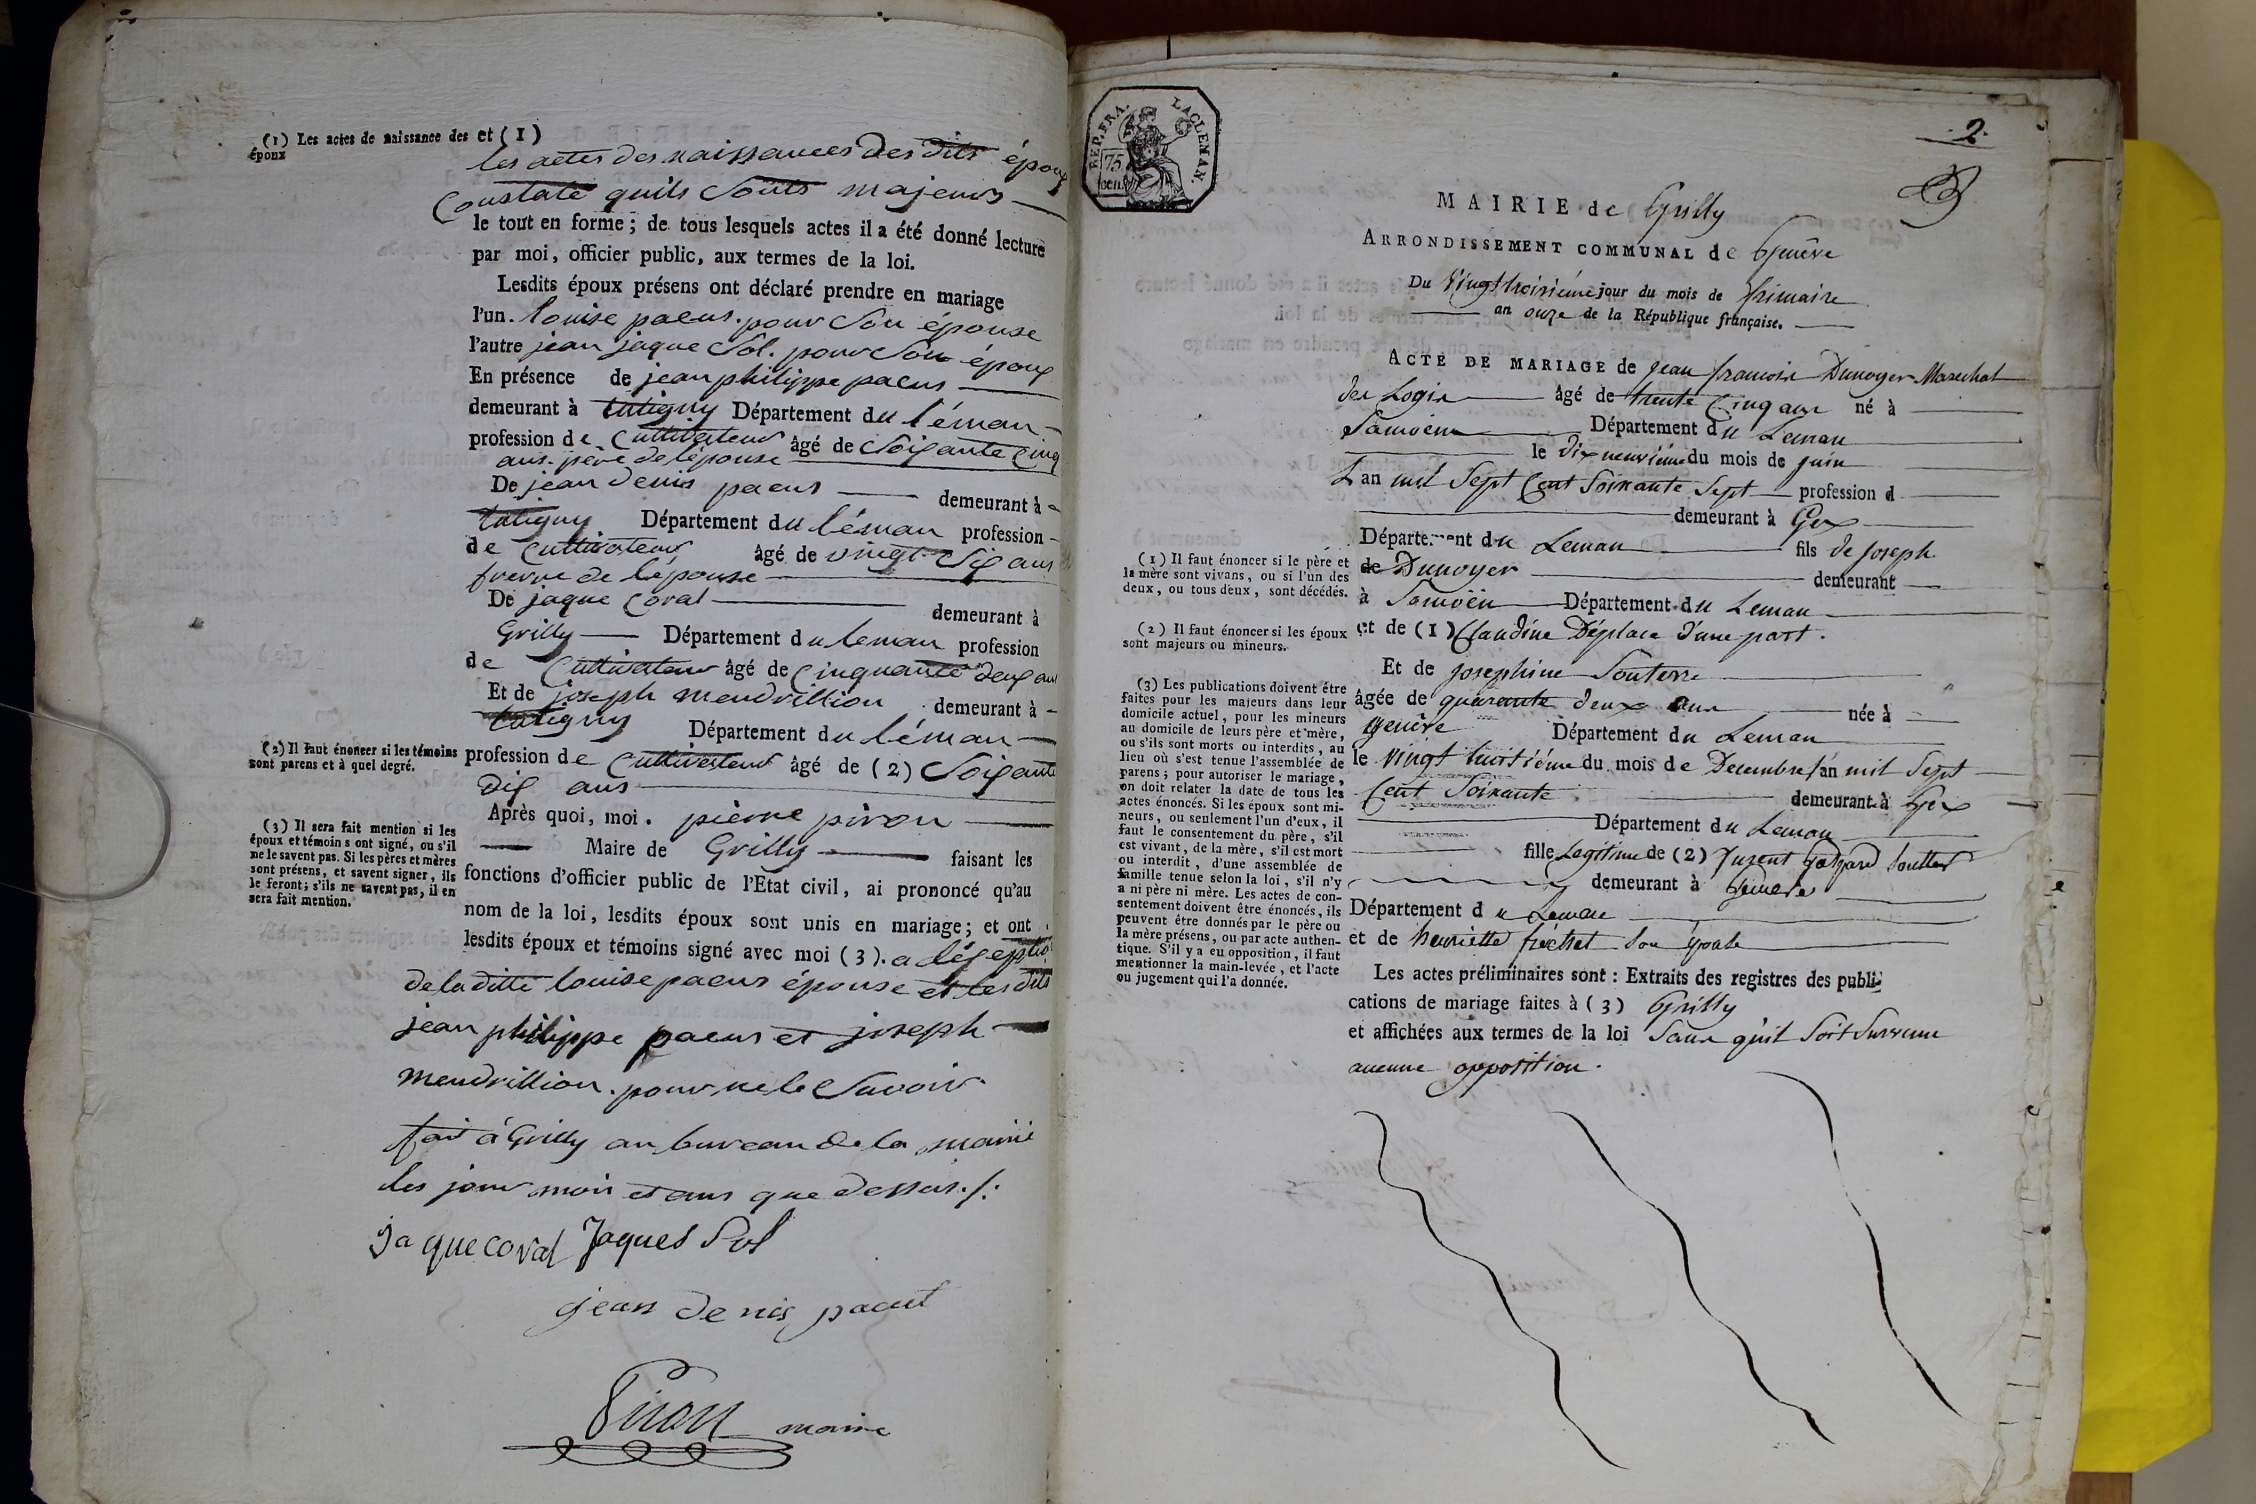 (1) Les actes de naissance des
époux
et (1)
les actes des naissances des dits époux
Constate quils Sonts majeurs
le tout en forme ; de tous lesquels actes il a été donné lecture
par moi, officier public, aux termes de la loi.
Lesdits époux présens ont déclaré prendre en mariage
l'un. louise pacus. pour Son épouse
l'autre jean jaque Sol. pour Son époux
En présence de jean philippe pacus
demeurant à Département du léman
profession de Cultivateur âgé de Soixante Cinq
ans. père de lépouse
De jean denis pacus demeurant à
Département du léman profession
de Cultivateur âgé de vingt Six ans
frerre de lépouse
De jaque Coral demeurant à
Grilly Département du leman profession
de Cultivateur âgé de Cinquante deux ans
Et de joseph mendrillion demeurant à
Département du léman
(2) Il faut énoncer si les témoins
sont parens et à quel degré.
profession de Cultivateur âgé de (2) Soixante
dix ans
Après quoi, moi. pierre piron
Maire de Grilly faisant les
(3) Il sera fait mention si les
époux et témoins ont signé, ou s'il
ne le savent pas. Si les pères et mères
sont présens, et savent signer, ils
le feront ; s'ils ne savent pas, il en
sera fait mention.
fonctions d'officier public de l'Etat civil, ai prononcé qu'au
nom de la loi, lesdits époux sont unis en mariage ; et ont
lesdits époux et témoins signé avec moi (3). a
de la ditte louise pacus épouse et les dits
jean philippe pacus et joseph
mendrillion. pour ne le Savoir
fait à Grilly au bureau de la mairie
les jour mois et ans que dessus./:
Jaque coral Jaques Sol
jean denis pacut
Piron maire
REP. FRA.
LAC LEMAN.
75
cent.
.2.
MAIRIE de Grilly
ARRONDISSEMENT COMMUNAL de Genève
Du Vingt troisiéme jour du mois de frimaire
an onze de la République française.
ACTE DE MARIAGE de Jean francois Dunoyer Marechal
des Logis âgé de trente Cinq ans né à
Samoën Département du Leman
le Dix neuviéme du mois de juin
L'an mil Sept Cent Soixante Sept profession d
demeurant à Gex
Département du Leman fils de Joseph
de Dunoyer demeurant
à Samoën Département du Leman
et de (1) Claudine Déplace d'une part.
(1) Il faut énoncer si le père et
la mère sont vivans, ou si l'un des
deux, ou tous deux, sont décédés.
(2) Il faut énoncer si les époux
sont majeurs ou mineurs.
(3) Les publications doivent être
faites pour les majeurs dans leur
domicile actuel, pour les mineurs
au domicile de leurs père et mère,
ou s'ils sont morts ou interdits, au
lieu où s'est tenue l'assemblée de
parens ; pour autoriser le mariage,
on doit relater la date de tous les
actes énoncés. Si les époux sont mi-
neurs, ou seulement l'un d'eux, il
faut le consentement du père, s'il
est vivant, de la mère, s'il est mort
ou interdit, d'une assemblée de
famille tenue selon la loi, s'il n'y
a ni père ni mère. Les actes de con-
sentement doivent être énoncés, ils
peuvent être donnés par le père ou
la mère présens, ou par acte authen-
tique. S'il y a eu opposition, il faut
mentionner la main-levée, et l'acte
ou jugement qui l'a donnée.
Et de Josephine Souterre
âgée de quarante deux ans née à
genève Département du Leman
le vingt huitiéme du mois de Decembre l'an mil Sept
Cent Soixante demeurant à Gex
Département du Leman
fille Légitime de (2)
demeurant à Genève
Département du Leman
et de henriette fréchet Son épouse
Les actes préliminaires sont : Extraits des registres des publi-
cations de mariage faites à (3) Grilly
et affichées aux termes de la loi Sans qu'il Soit Survenu
aucune opposition.